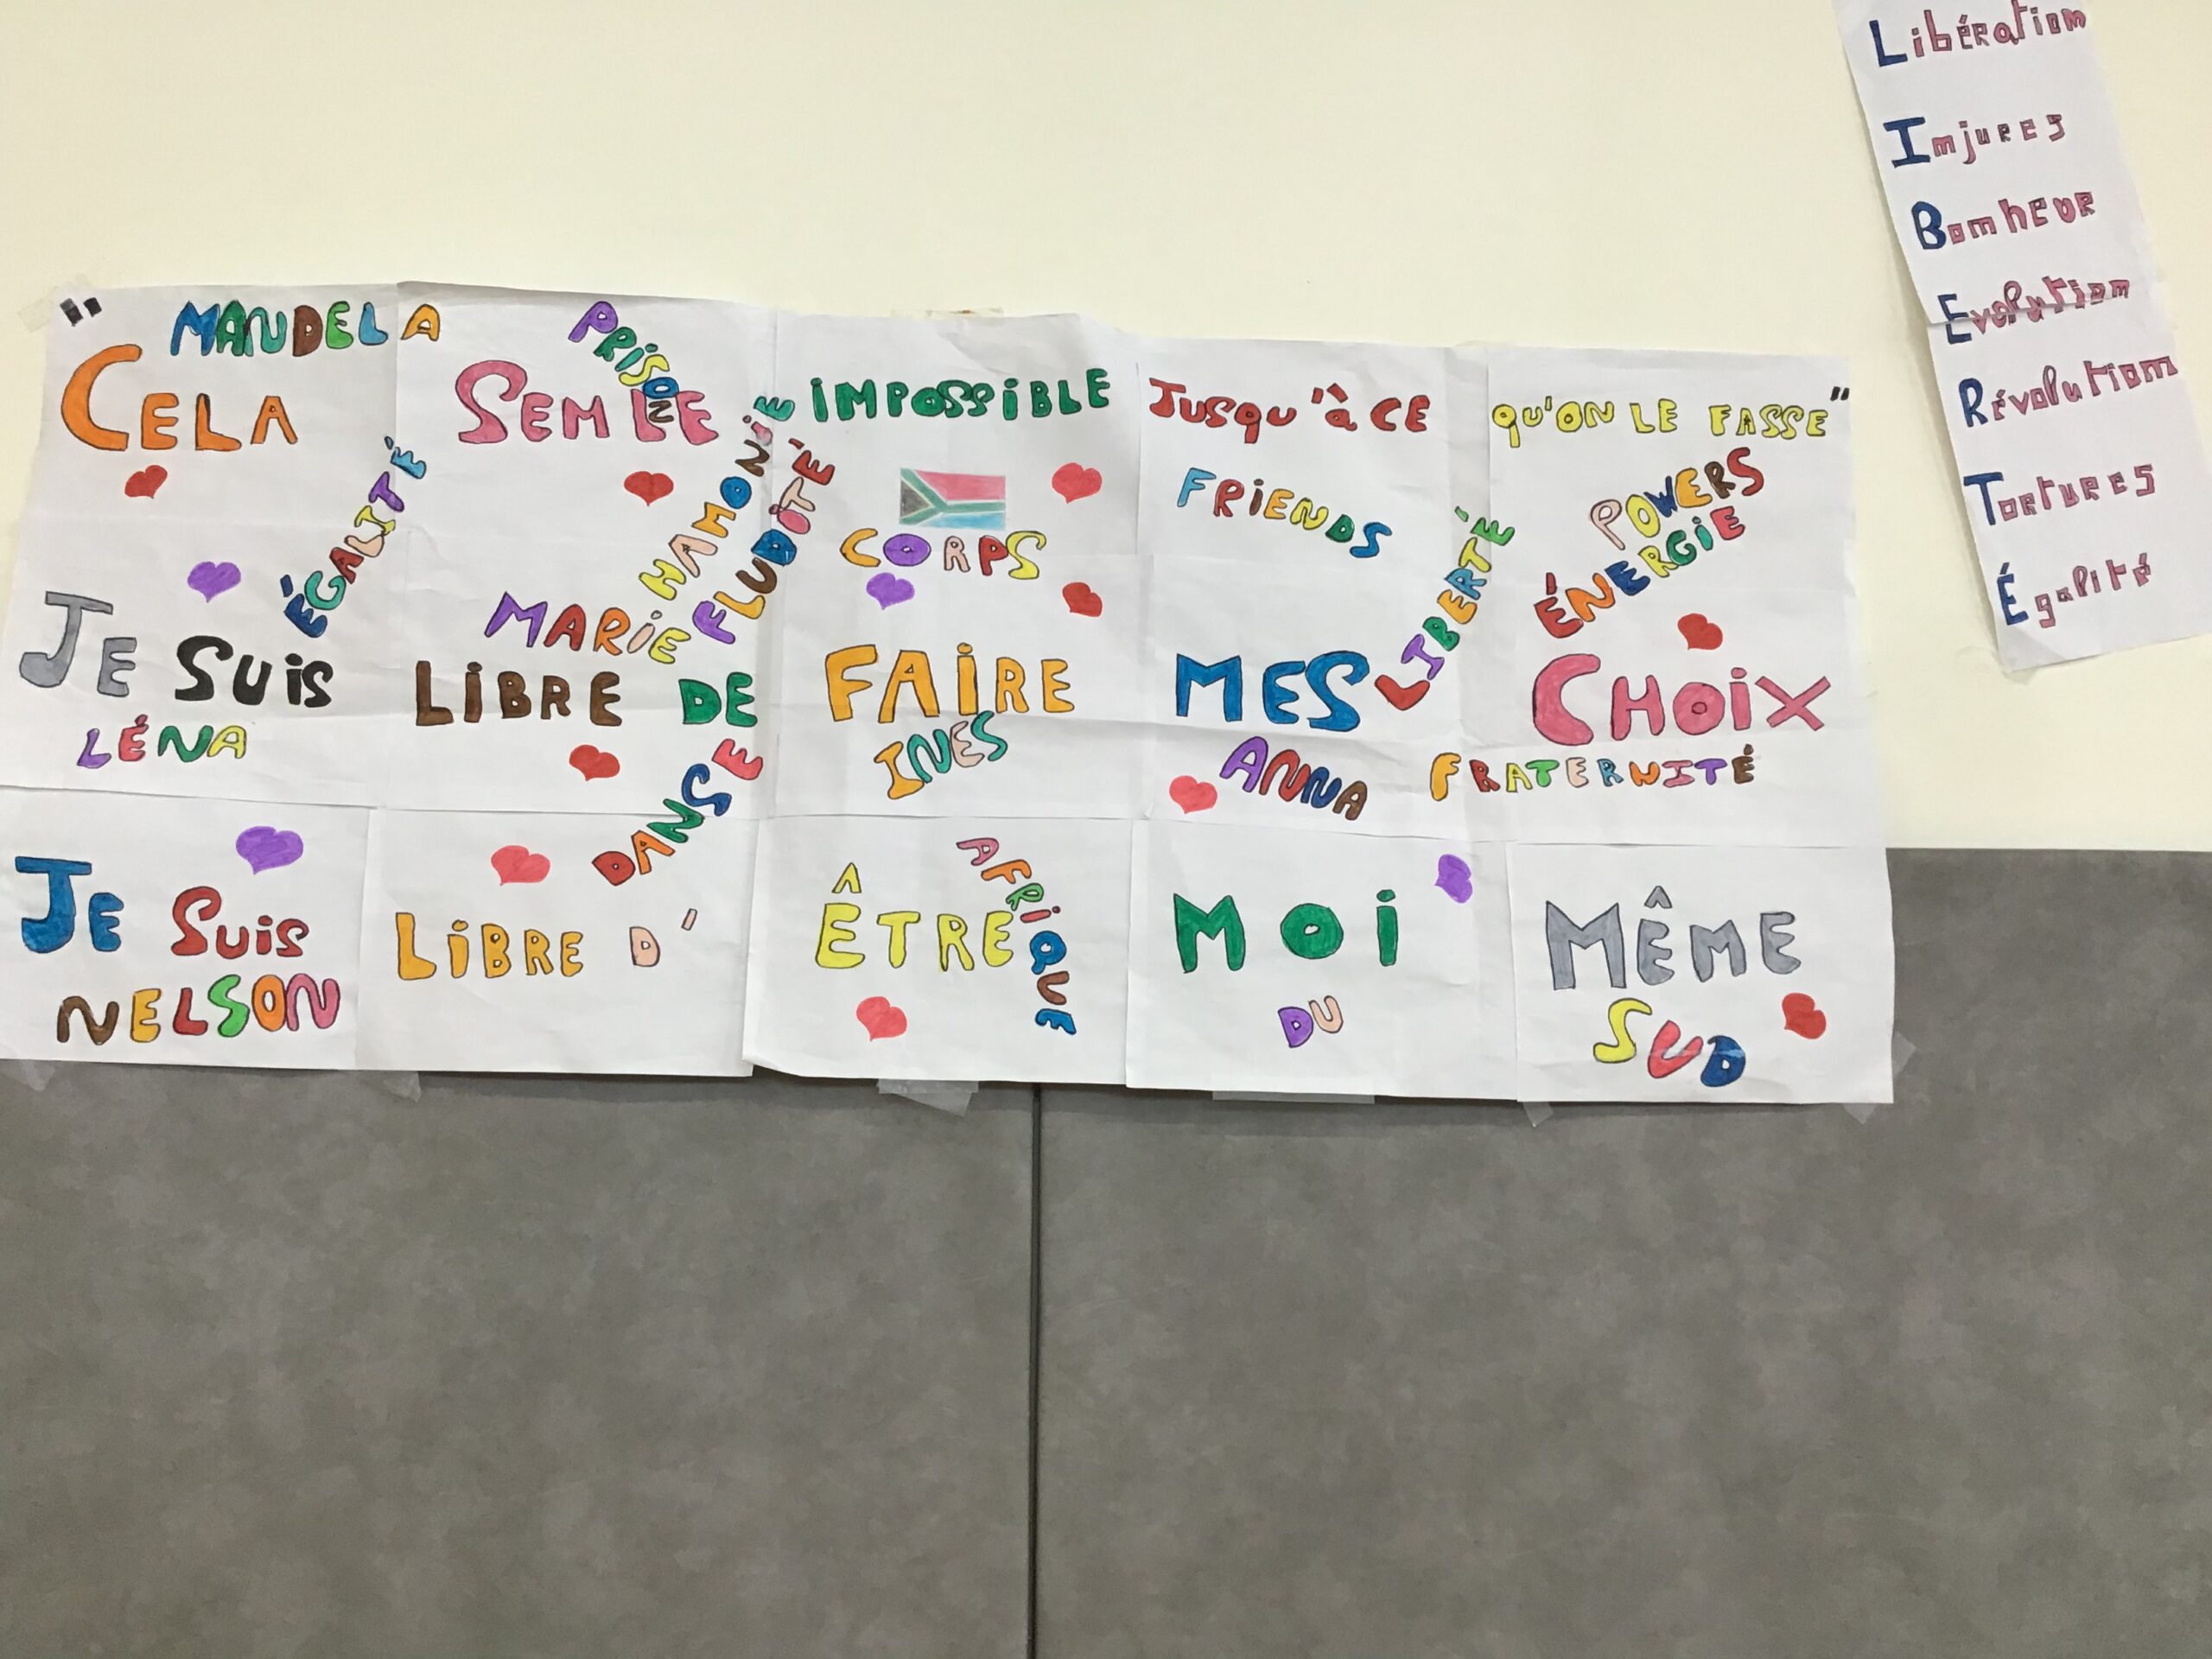 "
MANDELA
PRISON
CELA SEMBLE IMPOSSIBLE JUSQU'À CE QU'ON LE FASSE"
ÉGALITÉ
HAMONIE
FLUDITÉ
CORPS
FRIENDS
LIBERTÉ
POWERS
ÉNERGIE
MARIE
JE SUIS LIBRE DE FAIRE MES CHOIX
LÉNA
INES
ANNA
FRATERNITÉ
DANSE
AFRIQUE
JE SUIS LIBRE D' ÊTRE MOI MÊME
NELSON
DU
SUD
Libération
Injures
Bonheur
Evolution
Révolution
Tortures
Égalité